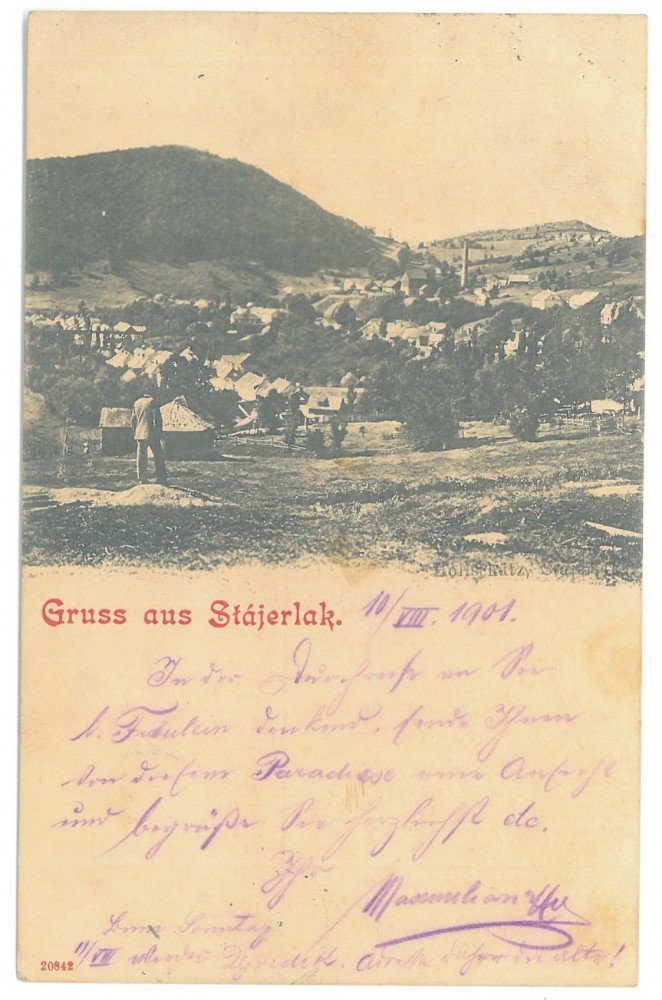 Gruss aus Stájerlak. 10/VIII. 1901.
In der Durchreise an Sie
l. Fräulein denkend, sende Ihnen
von diesem Paradiese eine Ansicht
und begrüße Sie herzlichst etc.
Ihr
Maxmilian
Sonntag
11/VIII wieder Adresse daher die alte!
20842